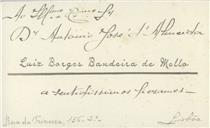 Ao Illmo. Exmo. Sr.
Dr. António José d'Almeida
Luiz Borges Bandeira de Mello
a sentidissimos pezames
Rua da Trindade, 156-2º
Lisboa